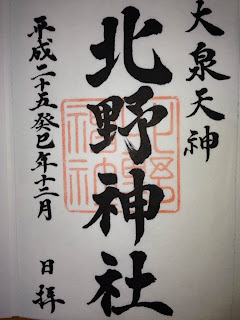 大泉天神
北野神社
平成二十五癸巳年十二月 日拝